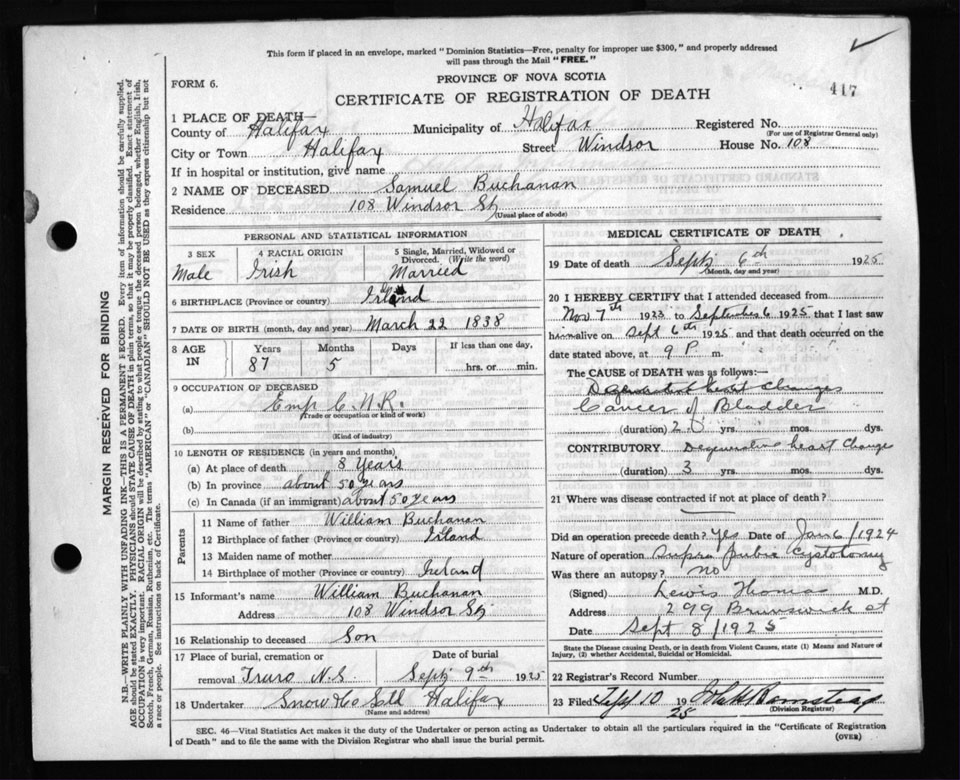 This form if placed in an envelope, marked "Dominion Statistics—Free, penalty for improper use $300," and properly addressed
will pass through the Mail "FREE."
FORM 6.
PROVINCE OF NOVA SCOTIA
417
CERTIFICATE OF REGISTRATION OF DEATH
1 PLACE OF DEATH—
County of Halifax Municipality of Halifax Registered No.
(For use of Registrar General only)
City or Town Halifax Street Windsor House No. 108
If in hospital or institution, give name
2 NAME OF DECEASED Samuel Buchanan
Residence 108 Windsor St
(Usual place of abode)
PERSONAL AND STATISTICAL INFORMATION
3 SEX 4 RACIAL ORIGIN 5 Single, Married, Widowed or
Divorced. (Write the word)
Male Irish Married
6 BIRTHPLACE (Province or country) Irland
7 DATE OF BIRTH (month, day and year) March 22 1838
8 AGE IN Years Months Days If less than one day,
87 5 hrs. or min.
9 OCCUPATION OF DECEASED
(a) Emp C.N.R.
(Trade or occupation or kind of work)
(b)
(Kind of industry)
10 LENGTH OF RESIDENCE (in years and months)
(a) At place of death 8 Years
(b) In province about 50 years
(c) In Canada (if an immigrant) about 50 years
Parents
11 Name of father William Buchanan
12 Birthplace of father (Province or country) Irland
13 Maiden name of mother
14 Birthplace of mother (Province or country) Ireland
15 Informant's name William Buchanan
Address 108 Windsor St
16 Relationship to deceased Son
17 Place of burial, cremation or Date of burial
removal Truro N.S. Sept 9th 1925
18 Undertaker Snow & Co Ltd Halifax
(Name and address)
MEDICAL CERTIFICATE OF DEATH
19 Date of death Sept 6th 1925
(Month, day and year)
20 I HEREBY CERTIFY that I attended deceased from
Nov 7th 1923 to September 6 1925 that I last saw
him alive on Sept 6th 1925 and that death occurred on the
date stated above, at 9 P. m.
The CAUSE of DEATH was as follows:—
Degenerated heart changes
Cancer of Bladder
(duration) 2 yrs. mos. dys.
CONTRIBUTORY Degenerative heart Change
(duration) 3 yrs. mos. dys.
21 Where was disease contracted if not at place of death?
Did an operation precede death? Yes Date of Jan 6/1924
Nature of operation Supra pubic Cystotomy
Was there an autopsy? no
(Signed) Lewis Thomas M.D.
Address 299 Brunswick st
Date Sept 8/1925
State the Disease causing Death, or in death from Violent Causes, state (1) Means and Nature of
Injury, (2) whether Accidental, Suicidal or Homicidal.
22 Registrar's Record Number
23 Filed Sept 10 1925
(Division Registrar)
SEC. 46—Vital Statistics Act makes it the duty of the Undertaker or person acting as Undertaker to obtain all the particulars required in the "Certificate of Registration
of Death" and to file the same with the Division Registrar who shall issue the burial permit. (OVER)
MARGIN RESERVED FOR BINDING
N.B.—WRITE PLAINLY WITH UNFADING INK—THIS IS A PERMANENT RECORD. Every item of information should be carefully supplied.
AGE should be stated EXACTLY. PHYSICIANS should STATE CAUSE OF DEATH in plain terms, so that it may be properly classified. Exact statement of
OCCUPATION is very important. RACIAL ORIGIN will be described by stating to what people or tongue the deceased person belonged, whether English, Irish,
Scotch, French, German, Russian, Ruthenian, etc. The terms "AMERICAN" or "CANADIAN" SHOULD NOT BE USED as they express citizenship but not
a race or people. See instructions on back of Certificate.